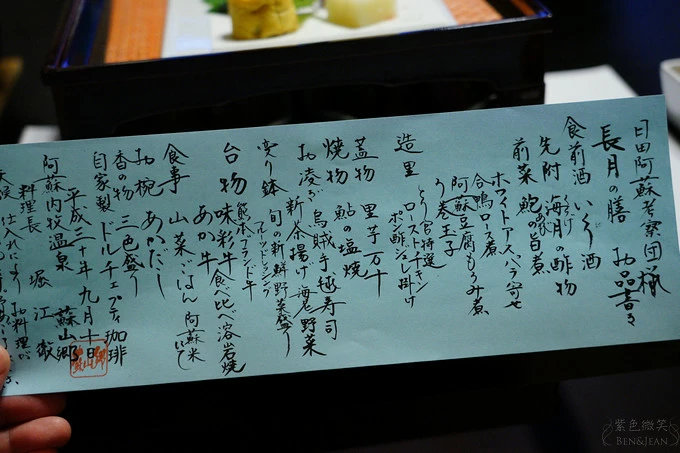 日田阿蘇考察団様
長月の膳 お品書き
食前酒 いくり酒
先附 海月の酢物
くらげ
前菜 鮑の旨煮
ホワイトアスパラ寄せ
合鴨ロース煮
阿蘇豆腐もろみ煮
う巻玉子
造里 とり宮特選
ローストチキン
ポン酢ジュレ掛け
蓋物 里芋万十
焼物 鮎の塩焼
お凌ぎ 烏賊手毬寿司
新茶揚げ 海老 野菜
実り鉢 旬の新鮮野菜盛り
フルーツドレッシング
台物 味彩牛 食べ比べ溶岩焼
あか牛
熊本ブランド牛
食事 山菜ごはん 阿蘇米
お椀 あかだし
香の物 三色盛り
自家製 ドルチェプティ 珈琲
平成三十年九月十日
阿蘇内牧温泉 蘇山郷
料理長 堀江
仕入れにより お料理が
紫色微笑
BEN&JEAN